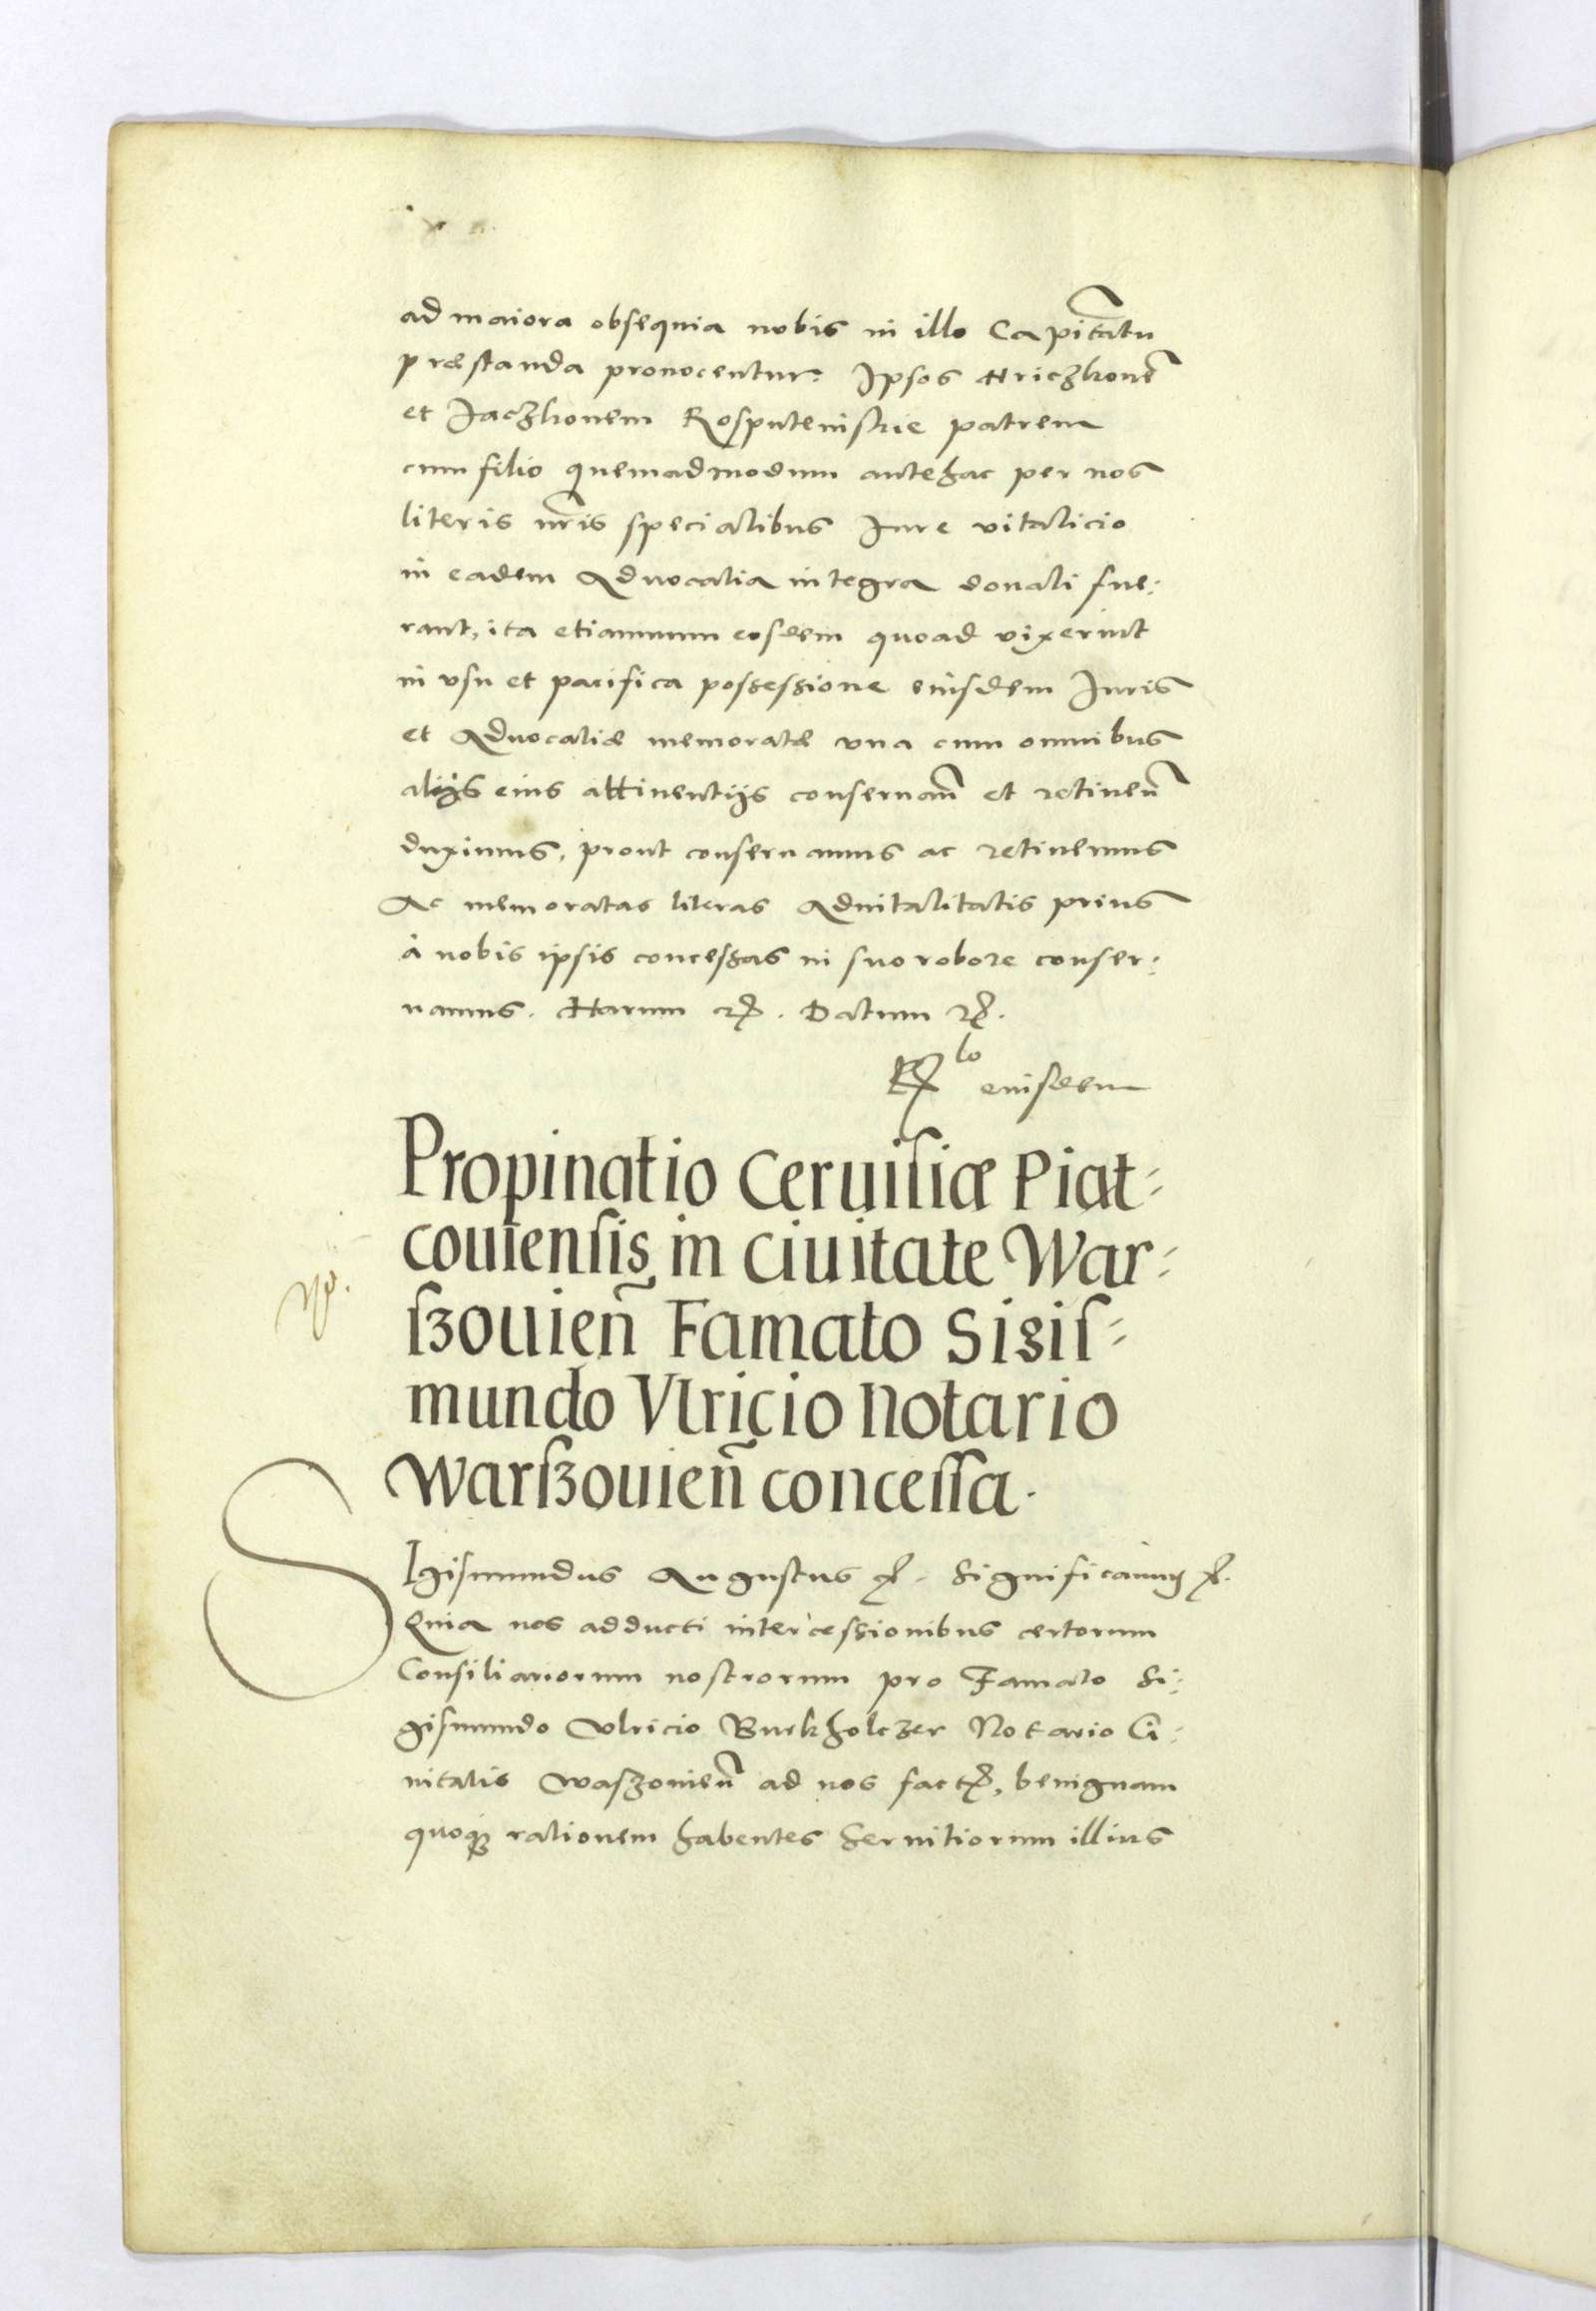 ad maiora obsequia nobis in illo Capitāatu
præstanda prouocentur: Ipsos Hriczkonē
et Jaczkonem Rosputeinskie patrem
cum filio quemadmodum antehac per nos
literis nr̃is specialibus Iure vitalicio
in eadem Aduocatia integra donati fue:
rant, ita etiamnum eosdem quoad vixerint
in vsu et pacifica possessione eiusdem Iuris
et Aduocatiæ memoratæ vna cum omnibus
alijs eius attinentijs conseruañ et retineñ
duximus, prout conseruamus ac retinemus
Ac memoratas literas Aduitalitatis prius
à nobis ipsis concessas in suo robore conser:
uamus. Harum etc. Datum etc.
Rlo eiusdem
Propinatio Ceruisiæ Piat=
couiensis in Ciuitate War=
szouieñ Famato Sigis=
mundo Vlricio Notario
Warszouieñ concessa.
SIgismundus Augustus etc. Significamus etc.
Quia nos adducti intercessionibus certorum
Consiliariorum nostrorum pro Famato Si:
gismundo Vlricio Burkholczer Notario Ci:
uitatis Waszouieñ ad nos fact, benignam
quoque rationem habentes Seruitiorum illius